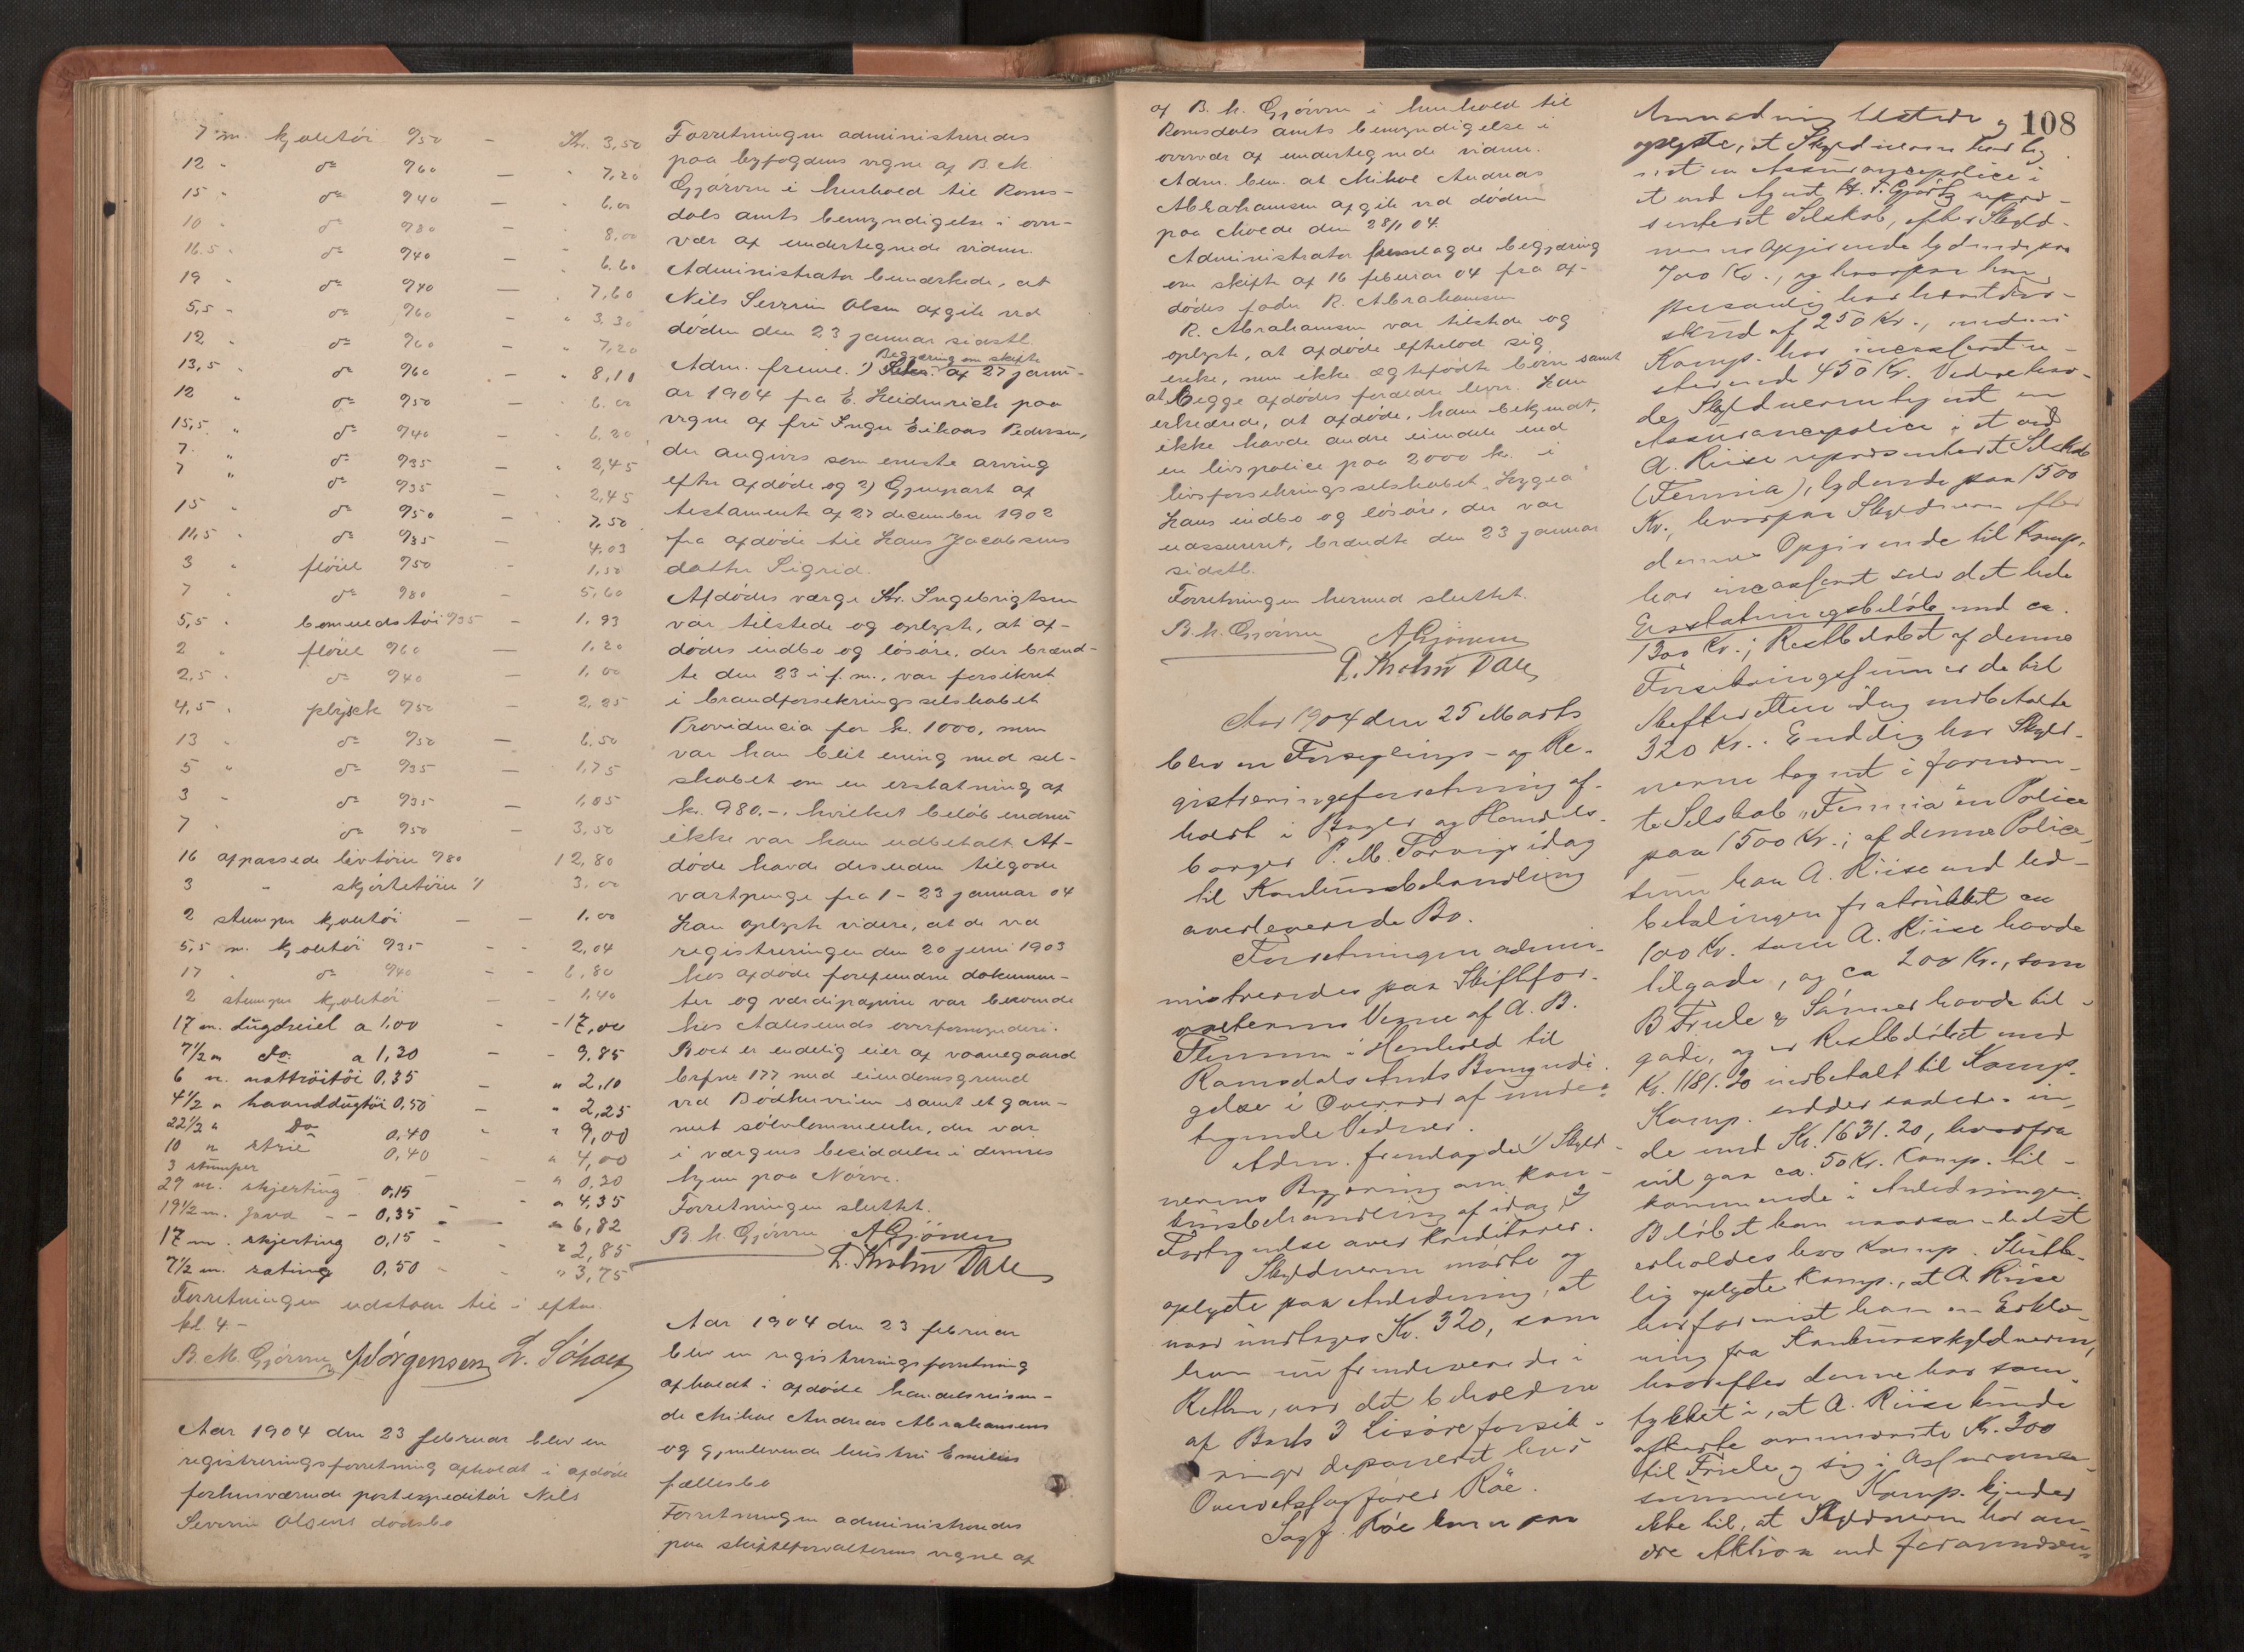 7 m. kjoletöi 0/50 - Kr. 3,50
12 " do 0/60 - " 7,20
15 " do 0/40 - " 6.00
10 " do 0/80 - " 8,00
16.5 " do 0/40 - " 6.60
19 " do 0/40 - " 7,60
5,5 " do 0/60 - " 3.30
12 " do 0/60 - " 7,20
13,5 " do 0/60 - " 8,10
12 " do 0/50 - " 6.00
15,5 " do 0/40 - " 6,20
7 " do 0/35 - " 2,45
7 " do 0/35 - " 2,45
15 " do 0/50 - " 7,50
11,5 " do 0/35 - 4,03
3 " flöiel 0/50 - 1,50
7 " do 0/80 - 5,60
5,5 " bomuldstöi 0/35 - 1.93
2 " flöiel 0/60 - 1,20
2,5 " do 0/40 - 1,00
4,5 " plysch 0/50 - 2,25
13 " do 0/50 - 6.50
5 " do 0/35 - 1,75
3 " do 0/35 - 1,05
7 " do 0/50 - 3,50
16 afpassede livtöier 0/80 12,80
3 " skjörtetöier 1/ 3.00
2 stumper kjoletöi - - 1.00
5,5 m. kjoletöi 0/35 - - 2,04
17 " do 0/40 - - 6,80
2 stumper kjoletöi - - 1,40
17 m. dugdreiel a 1,00 - - 17,00
7 1/2 m do. a 1,30 - - 9,85
6 m. nattröitöi 0,35 - " 2,10
4 1/2 " haanddugtöi 0,50 - " 2,25
22 1/2 " Do 0,40 " " 9,00
10 " strie 0,40 " 4,00
3 stumper - - " 0,20
29 m. skjerting 0,15 - " 4,35
19 1/2 m. Java - - 0,35 - - " 6,82
17 m. skjerting 0,15 - - " 2,85
7 1/2 m. sating 0,50 - - " 3,75
Forretningen udstaar til i efterm.
kl. 4.-
B. M. Gjörven NJörgensen L. Söholt
Aar 1904 den 23 februar blev en
registreringsforretning afholdt i afdöde
forhenværende postexpeditör Nils
Severin Olsens dödsbo
Forretningen administreredes
paa byfogdens vegne af B. M.
Gjörven i henhold til Roms-
dals amts bemyndigelse i over-
vær af undertegnede vidner.
Administrator bemærkede, at
Nils Severin Olsen afgik ved
döden den 23 januar sidstl.
Begjæring om skifte
Adm. freml. 1) af 27 janu-
ar 1904 fra E. Heidenreich paa
vegne af fru Inga Eikaas Pedersen,
der angives som eneste arving
efter afdöde og 2) Gjenpart af
testamente af 27 december 1902
fra afdöde til Hans Jacobsens
datter Sigrid.
Afdödes værge Kr. Ingebrigtsen
var tilstede og oplyste, at af-
dödes indbo og lösöre, der brænd-
te den 23 i f. m., var forsikret
i brandforsekringsselskabet
Providencia for kr. 1000, men
var han blit enig med sel-
skabet om en erstatning af
kr. 980.-, hvilket belöb endnu
ikke var ham udbetalt. Af-
döde havde desuden tilgode
vartpenge fra 1 - 23 januar 04
Han oplyste videre, at de ved
registreringen den 20 juni 1903
hos afdöde forefundne dokumen-
ter og værdipapirer var beroende
hos Aalesunds overformynderi.
Boet er endelig eier af vaanegaard
brfnr 177 med eiendomsgrund
ved Bödkerveien samt et gam-
melt sölvlommeuhr, der var
i værgens besiddelse i dennes
hjem paa Nörve.
Forretningen sluttet.
B. M. Gjörven AGjörven
P. Tholm Dale
Aar 1904 den 23 februar
blev en registreringsforretning
afholdt i afdöde handelsreisen-
de Mikal Andreas Abrahamsens
og gjenlevende hustru Emilies
fællesbo
Forretningen administreredes
paa skifteforvalterens vegne af
108
af B. M. Gjörven i henhold til
Romsdals amts bemyndigelse i
overvær af undertegnede vidner.
Adm. bem. at Mikal Andreas
Abrahamsen afgik ved döden
paa Molde den 28/1 04.
Administrator fremlagde begjæring
om skifte af 16 februar 04 fra af-
dödes fader R. Abrahamsen
R. Abrahamsen var tilstede og
oplyste, at afdöde efterlod sig
enke, men ikke ægtefödte börn samt
at begge afdödes forældre lever. Han
erklærede, at afdöde, ham bekjendt,
ikke havde andre eiendele end
en livspolice paa 2000 kr. i
livsforsekringsselskabet "Hygea"
Hans indbo og lösöre, der var
uassureret, brændte den 23 januar
sidstl.
Forretningen hermed sluttet.
B. M. Gjörven AGjörven
P. Tholm Dale
Aar 1904 den 25 Marts
blev en Forseglings- og Re-
gistreringsforretning af-
holdt i Bager og Handels-
borger P. M. Torvigs idag
til Konkursbehandling
overleverede Bo.
Forretningen admini-
streredes paa Skiftefor-
valterens Vegne af A. B.
Flemmen i Henhold til
Romsdals Amts Bemyndi-
gelse i Overvær af under-
tegnede Vidner.
Adm. fremlagde 1) Skyld-
nerens Begjæring om Kon-
kursbehandling af idag 2)
Fortegnelse over Kreditorer.
Skyldneren mødte og
oplyste paa Anledning, at
naar undtages Kr. 320, som
han nu fremleverede i
Retten, var det beholdne
af Boets 3 Lösöreforsik-
ringer deponeret hos
Overretssagförer Röe.
Sagf. Röe kom paa
Anmodning tilstede og
oplyste, at Skyldneren har teg-
net en Assurancepolice i
et ved Agent H. F. Gjörtz repræ-
senteret Selskab, efter Skyld-
nerens Opgivende lydende paa
700 Kr., og hvorpaa han
personlig har hævet For-
skud af 250 Kr., medens
Komp. har incasseret re-
sterende 450 Kr. Videre hav-
de Skyldneren tegnet en
Assurancepolice i et ved
A. Riise repræsenteret Selskab
(Fennia), lydende paa 1500
Kr., hvorpaa Skyldneren efter
dennes Opgivende til Komp.
har incasseret selv det hele
Erstatningsbelöb med ca.
1300 Kr.; Restbelöbet af denne
Forsikringssum er de til
Skifteretten idag indbetalte
320 Kr. Enddig har Skyld-
neren tegnet i fornævn-
te Selskab "Fennia" en Police
paa 1500 Kr.; af denne Police-
sum har A. Riise ved Ud-
betalingen fratrukket ca
100 Kr. som A. Riise havde
tilgode, og ca 200 Kr., som
B Friele & Sönner havde til-
gode, og er Restbelöbet med
Kr. 1181.20 indbetalt til Komp.
Komp. sidder saaledes in-
de med Kr. 1631.20, hvorfra
vil gaa ca. 50 Kr. Komp. til-
kommende i Anledningen.
Belöbet kan naarsomhelst
erholdes hos Komp. Slutte-
lig oplyste Komp., at A. Riise
har forevist ham en Erklæ-
ring fra Konkursskyldneren,
hvorefter denne har sam-
tykket i, at A. Riise kunde
afkorte omnævnte Kr. 300
til Friele og sig i Assurance-
summen. Komp. kjender
ikke til, at Skyldneren har an-
dre Aktiva end forannævn-